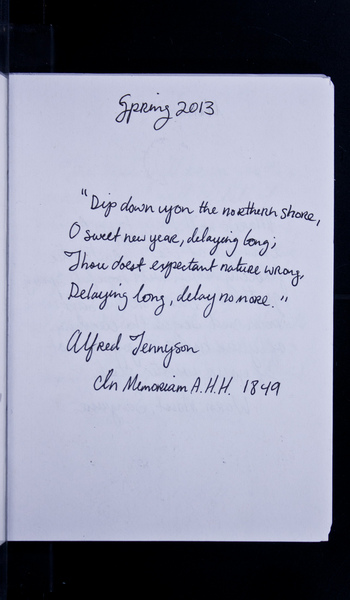 Spring 2013
"Dip down upon the northern shore,
O sweet new year, delaying long;
Thou doest expectant nature wrong,
Delaying long, delay no more."
Alfred Tennyson
In Memoriam A.H.H. 1849